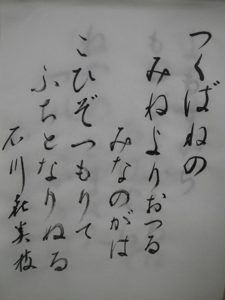 つくばねの
みねよりおつる
みなのがは
こひぞつもりて
ふちとなりぬる
石川喜美枝